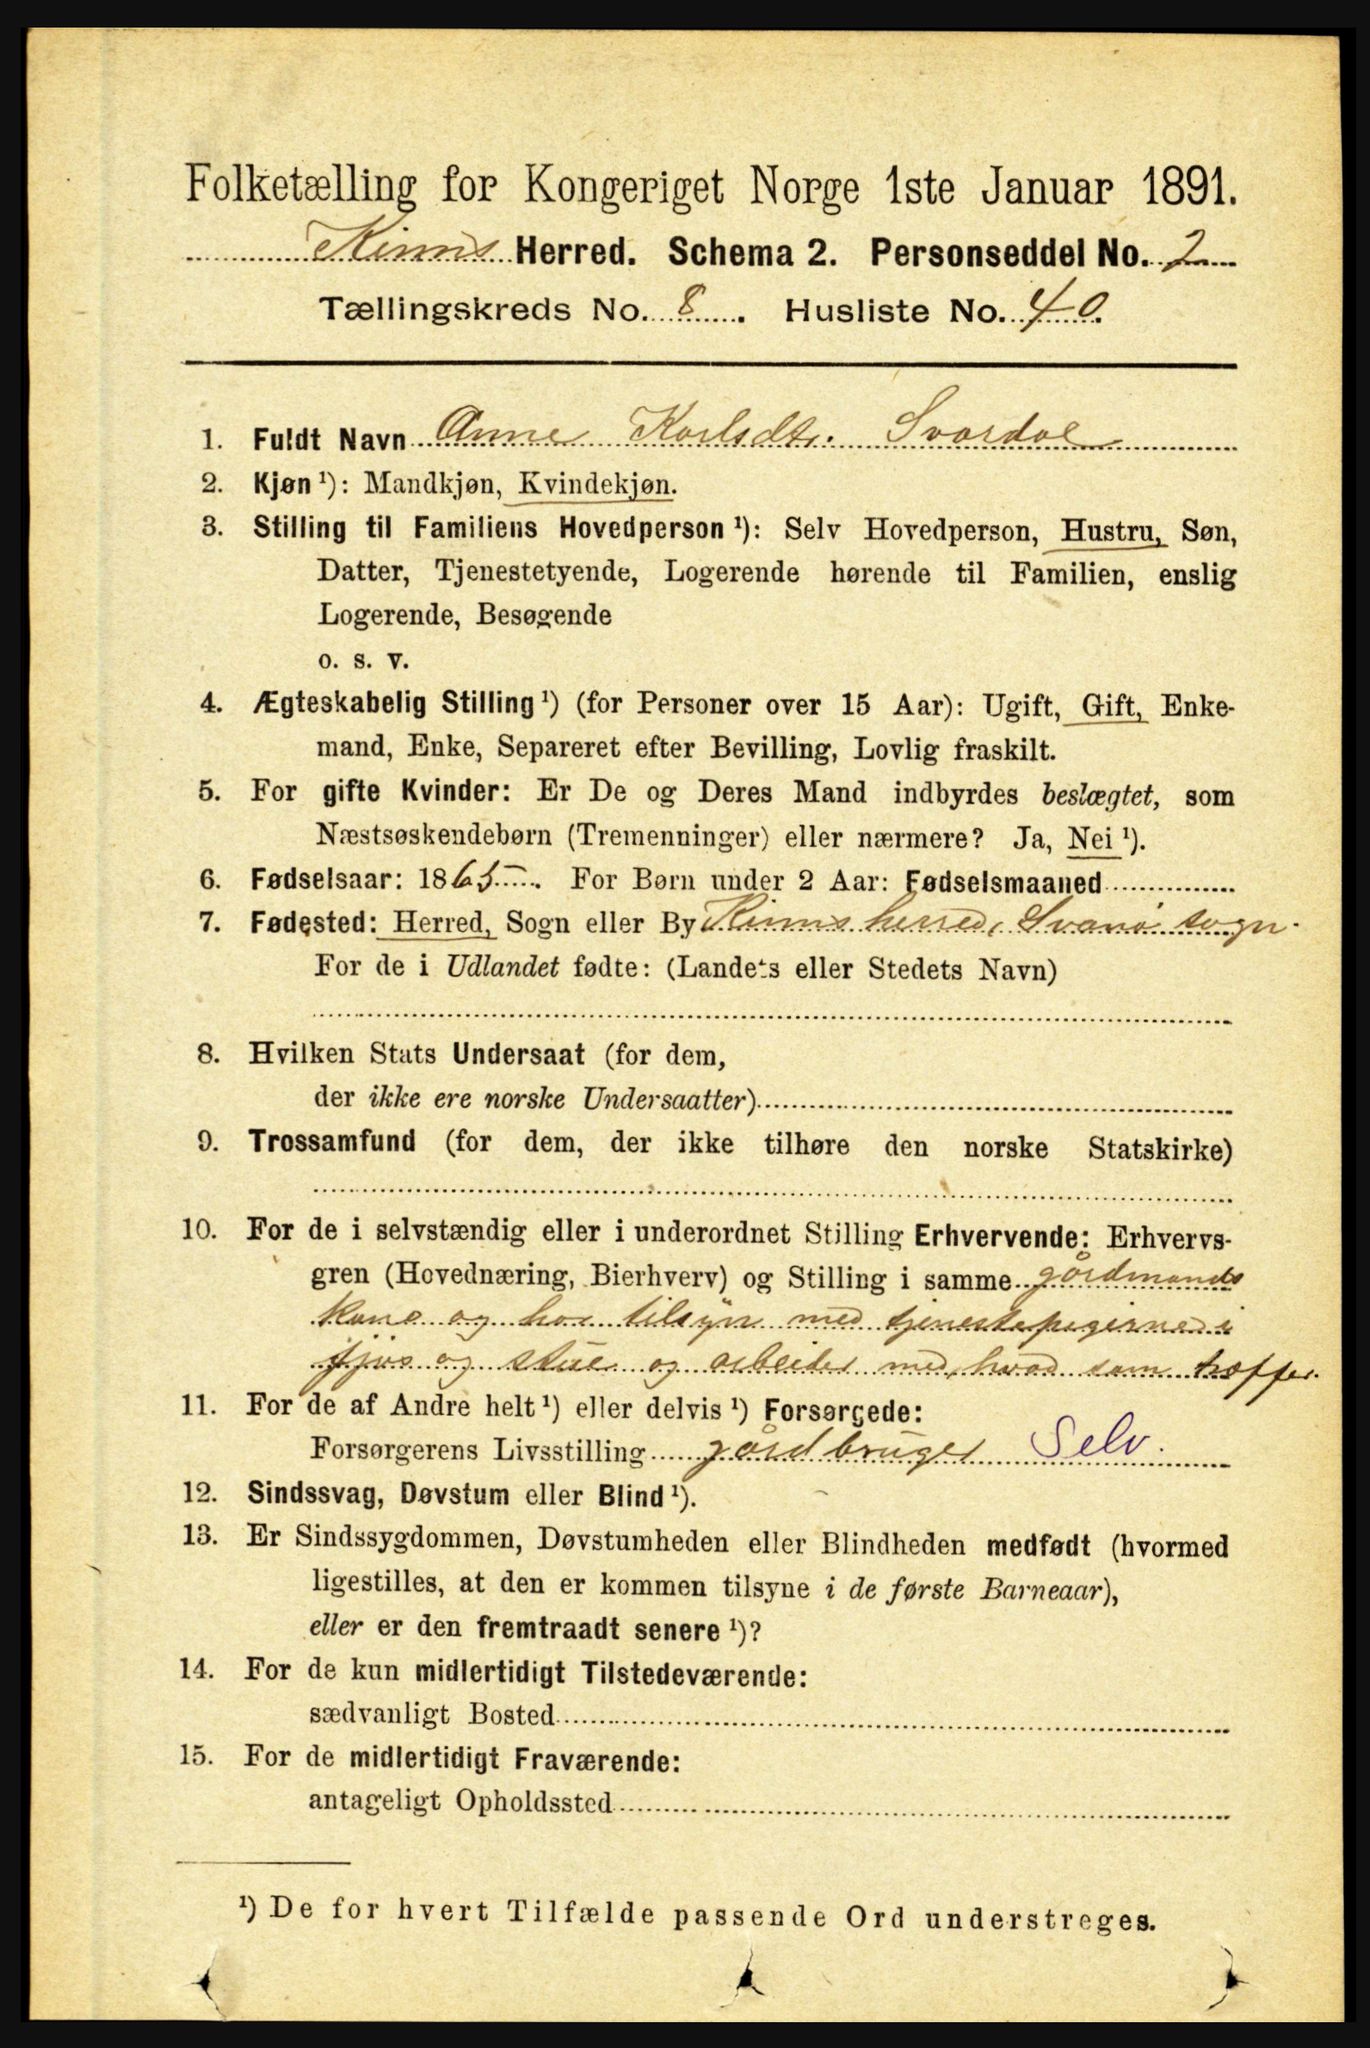 Folketælling for Kongeriget Norge 1ste Januar 1891.
Kinns Herred. Schema 2. Personseddel No. 2
Tællingskreds No. 8. Husliste No. 40.
1. Fuldt Navn Anne Karlsdtr. Svardal
2. Kjøn ¹): Mandkjøn, Kvindekjøn.
3. Stilling til Familiens Hovedperson ¹): Selv Hovedperson, Hustru, Søn,
Datter, Tjenestetyende, Logerende hørende til Familien, enslig
Logerende, Besøgende
o. s. v.
4. Ægteskabelig Stilling ¹) (for Personer over 15 Aar): Ugift, Gift, Enke-
mand, Enke, Separeret efter Bevilling, Lovlig fraskilt.
5. For gifte Kvinder: Er De og Deres Mand indbyrdes beslægtet, som
Næstsøskendebørn (Tremenninger) eller nærmere? Ja, Nei ¹).
6. Fødselsaar: 1865. For Børn under 2 Aar: Fødselsmaaned
7. Fødested: Herred, Sogn eller By Kinns herred, Svanø sogn.
For de i Udlandet fødte: (Landets eller Stedets Navn)
8. Hvilken Stats Undersaat (for dem,
der ikke ere norske Undersaatter)
9. Trossamfund (for dem, der ikke tilhøre den norske Statskirke)
10. For de i selvstændig eller i underordnet Stilling Erhvervende: Erhvervs-
gren (Hovednæring, Bierhverv) og Stilling i samme gårdmands
kone og har tilsyn med tjenestepigerne i
fjøs og stue og arbeider med, hvad som træffer.
11. For de af Andre helt ¹) eller delvis ¹) Forsørgede:
Forsørgerens Livsstilling gårdbruger Selv.
12. Sindssvag, Døvstum eller Blind ¹).
13. Er Sindssygdommen, Døvstumheden eller Blindheden medfødt (hvormed
ligestilles, at den er kommen tilsyne i de første Barneaar),
eller er den fremtraadt senere ¹)?
14. For de kun midlertidigt Tilstedeværende:
sædvanligt Bosted
15. For de midlertidigt Fraværende:
antageligt Opholdssted
¹) De for hvert Tilfælde passende Ord understreges.